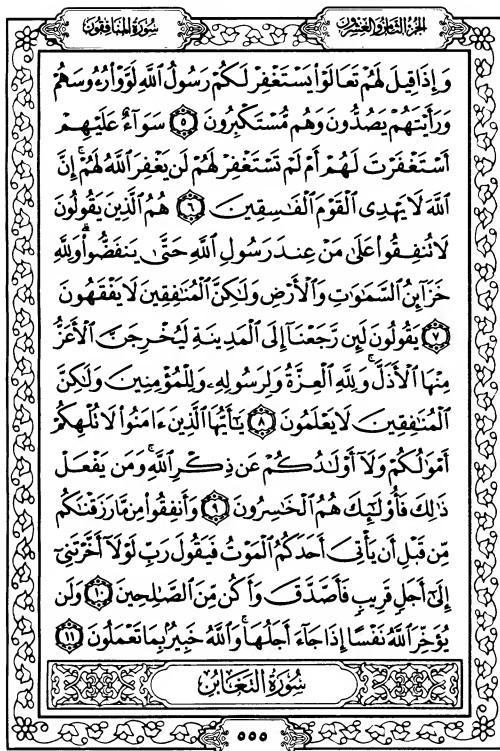 سُورَةُ المُنَافِقُون
الجُزْءُ الثَّامِنُ وَالعِشْرُون
وَإِذَا قِيلَ لَهُمْ تَعَالَوْا۟ يَسْتَغْفِرْ لَكُمْ رَسُولُ ٱللَّهِ لَوَّوْا۟ رُءُوسَهُمْ
وَرَأَيْتَهُمْ يَصُدُّونَ وَهُم مُّسْتَكْبِرُونَ ٥ سَوَآءٌ عَلَيْهِمْ
أَسْتَغْفَرْتَ لَهُمْ أَمْ لَمْ تَسْتَغْفِرْ لَهُمْ لَن يَغْفِرَ ٱللَّهُ لَهُمْ ۚ إِنَّ
ٱللَّهَ لَا يَهْدِى ٱلْقَوْمَ ٱلْفَـٰسِقِينَ ٦ هُمُ ٱلَّذِينَ يَقُولُونَ
لَا تُنفِقُوا۟ عَلَىٰ مَنْ عِندَ رَسُولِ ٱللَّهِ حَتَّىٰ يَنفَضُّوا۟ ۗ وَلِلَّهِ
خَزَآئِنُ ٱلسَّمَـٰوَٰتِ وَٱلْأَرْضِ وَلَـٰكِنَّ ٱلْمُنَـٰفِقِينَ لَا يَفْقَهُونَ
٧ يَقُولُونَ لَئِن رَّجَعْنَآ إِلَى ٱلْمَدِينَةِ لَيُخْرِجَنَّ ٱلْأَعَزُّ
مِنْهَا ٱلْأَذَلَّ ۚ وَلِلَّهِ ٱلْعِزَّةُ وَلِرَسُولِهِۦ وَلِلْمُؤْمِنِينَ وَلَـٰكِنَّ
ٱلْمُنَـٰفِقِينَ لَا يَعْلَمُونَ ٨ يَـٰٓأَيُّهَا ٱلَّذِينَ ءَامَنُوا۟ لَا تُلْهِكُمْ
أَمْوَٰلُكُمْ وَلَآ أَوْلَـٰدُكُمْ عَن ذِكْرِ ٱللَّهِ ۚ وَمَن يَفْعَلْ
ذَٰلِكَ فَأُو۟لَـٰٓئِكَ هُمُ ٱلْخَـٰسِرُونَ ٩ وَأَنفِقُوا۟ مِن مَّا رَزَقْنَـٰكُم
مِّن قَبْلِ أَن يَأْتِىَ أَحَدَكُمُ ٱلْمَوْتُ فَيَقُولَ رَبِّ لَوْلَآ أَخَّرْتَنِىٓ
إِلَىٰٓ أَجَلٍ قَرِيبٍ فَأَصَّدَّقَ وَأَكُن مِّنَ ٱلصَّـٰلِحِينَ ١٠ وَلَن
يُؤَخِّرَ ٱللَّهُ نَفْسًا إِذَا جَآءَ أَجَلُهَا ۚ وَٱللَّهُ خَبِيرٌۢ بِمَا تَعْمَلُونَ ١١
سُورَةُ التَّغَابُنِ
٥٥٥